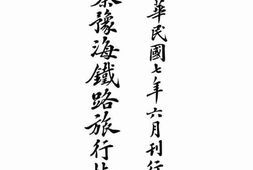 華民國七年六月刊行
豫海鐵路旅行